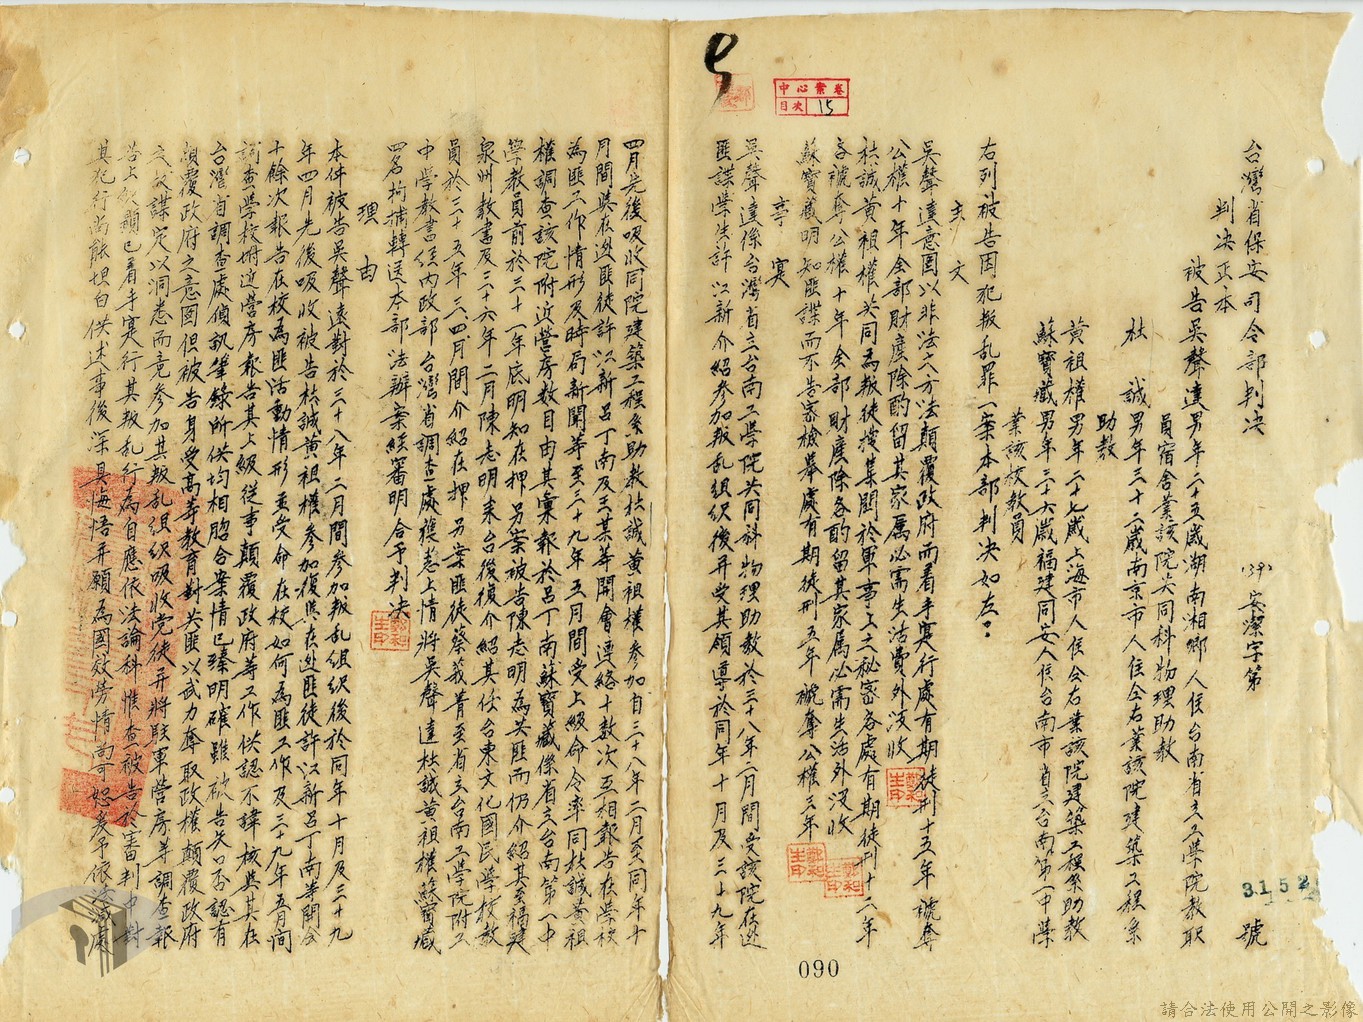 台灣省保安司令部判决
(39)安潔字第3152號
判决正本
被告吳聲達男年二十五歲湖南湘鄉人住台南省立工學院教職
員宿舍業該院共同科物理助教
杜 誠 男年三十二歲南京市人住仝右業該院建築工程系
助教
黃祖權男年二十七歲上海市人住仝右業該院建築工程系助教
蘇寶藏男年三十六歲福建同安人住台南市省立台南第一中學
業該校教員
右列被告因犯叛乱罪一案本部判决如左：
主文
吳聲達意图以非法之方法顛覆政府而着手实行處有期徒刑十五年褫奪
公權十年全部財產除酌留其家屬必需生活費外沒收
杜誠黃祖權共同為叛徒搜集關於軍事上之秘密各處有期徒刑十二年
各褫奪公權十年全部財產除各酌留其家屬必需生活外沒收
蘇寶藏明知匪諜而不告密檢舉處有期徒刑五年褫奪公權三年
事 实
吳聲達係台灣省立台南工學院共同科物理助教於三十八年二月間受該院在逃
匪諜學生許以新介紹參加叛乱組织後并受其領導於同年十月及三十九年
四月先後吸收同院建築工程系助教杜誠黃祖權參加自三十八年二月至同年十
月間與在逃匪徒許以新呂丁南及王某等開會連絡十数次互相報告在學校
為匪工作情形及時局新聞等至三十九年五月間受上級命令率同杜誠黃祖
權調查該院附近營房数目由其彙報於呂丁南蘇寶藏係省立台南第一中
學教員前於三十一年底明知在押另案被告陳志明為共匪而仍介紹其至福建
泉州教書及三十六年二月陳志明来台後復介紹其任台東文化國民學校教
員於三十五年三、四月間介紹在押另案匪徒蔡義菁至省立台南工學院附工
中學教書經內政部台灣省調查處獲悉上情將吳聲達杜誠黃祖權蘇寶藏
四名拘捕轉送本部法辦案經審明合予判决
理由
本件被告吳聲達對於三十八年二月間參加叛乱組织後於同年十月及三十九
年四月先後吸收被告杜誠黃祖權參加復與在逃匪徒許以新呂丁南等開会
十餘次報告在校為匪活動情形並受命在校如何為匪工作及三十九年五月間
調查學校附近營房報告其上級從事顛覆政府等工作供認不諱核與其在
台灣省調查處偵訊筆錄所供均相脗合案情已臻明確雖被告矢口否認有
顛覆政府之意图但被告身受高等教育對共匪以武力奪取政權顛覆政府
之謀定以洞悉而竟參加其叛乱組织吸收党徒并將駐軍營房等調查報
告上級顯已着手实行其叛乱行為自應依法論科惟查被告於審判中對
其犯行尚能坦白供述事後深具悔悟并願為國效劳情尚可恕爰予依法減處
中心案卷
目次 15
090
請合法使用公開之影像